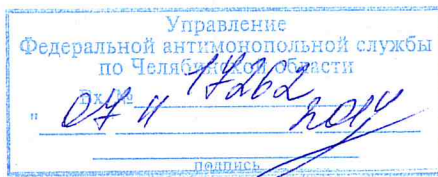 Управление
Федеральной антимонопольной службы
по Челябинской области
Вх.№ 17262
" 07 " 11 2014
подпись